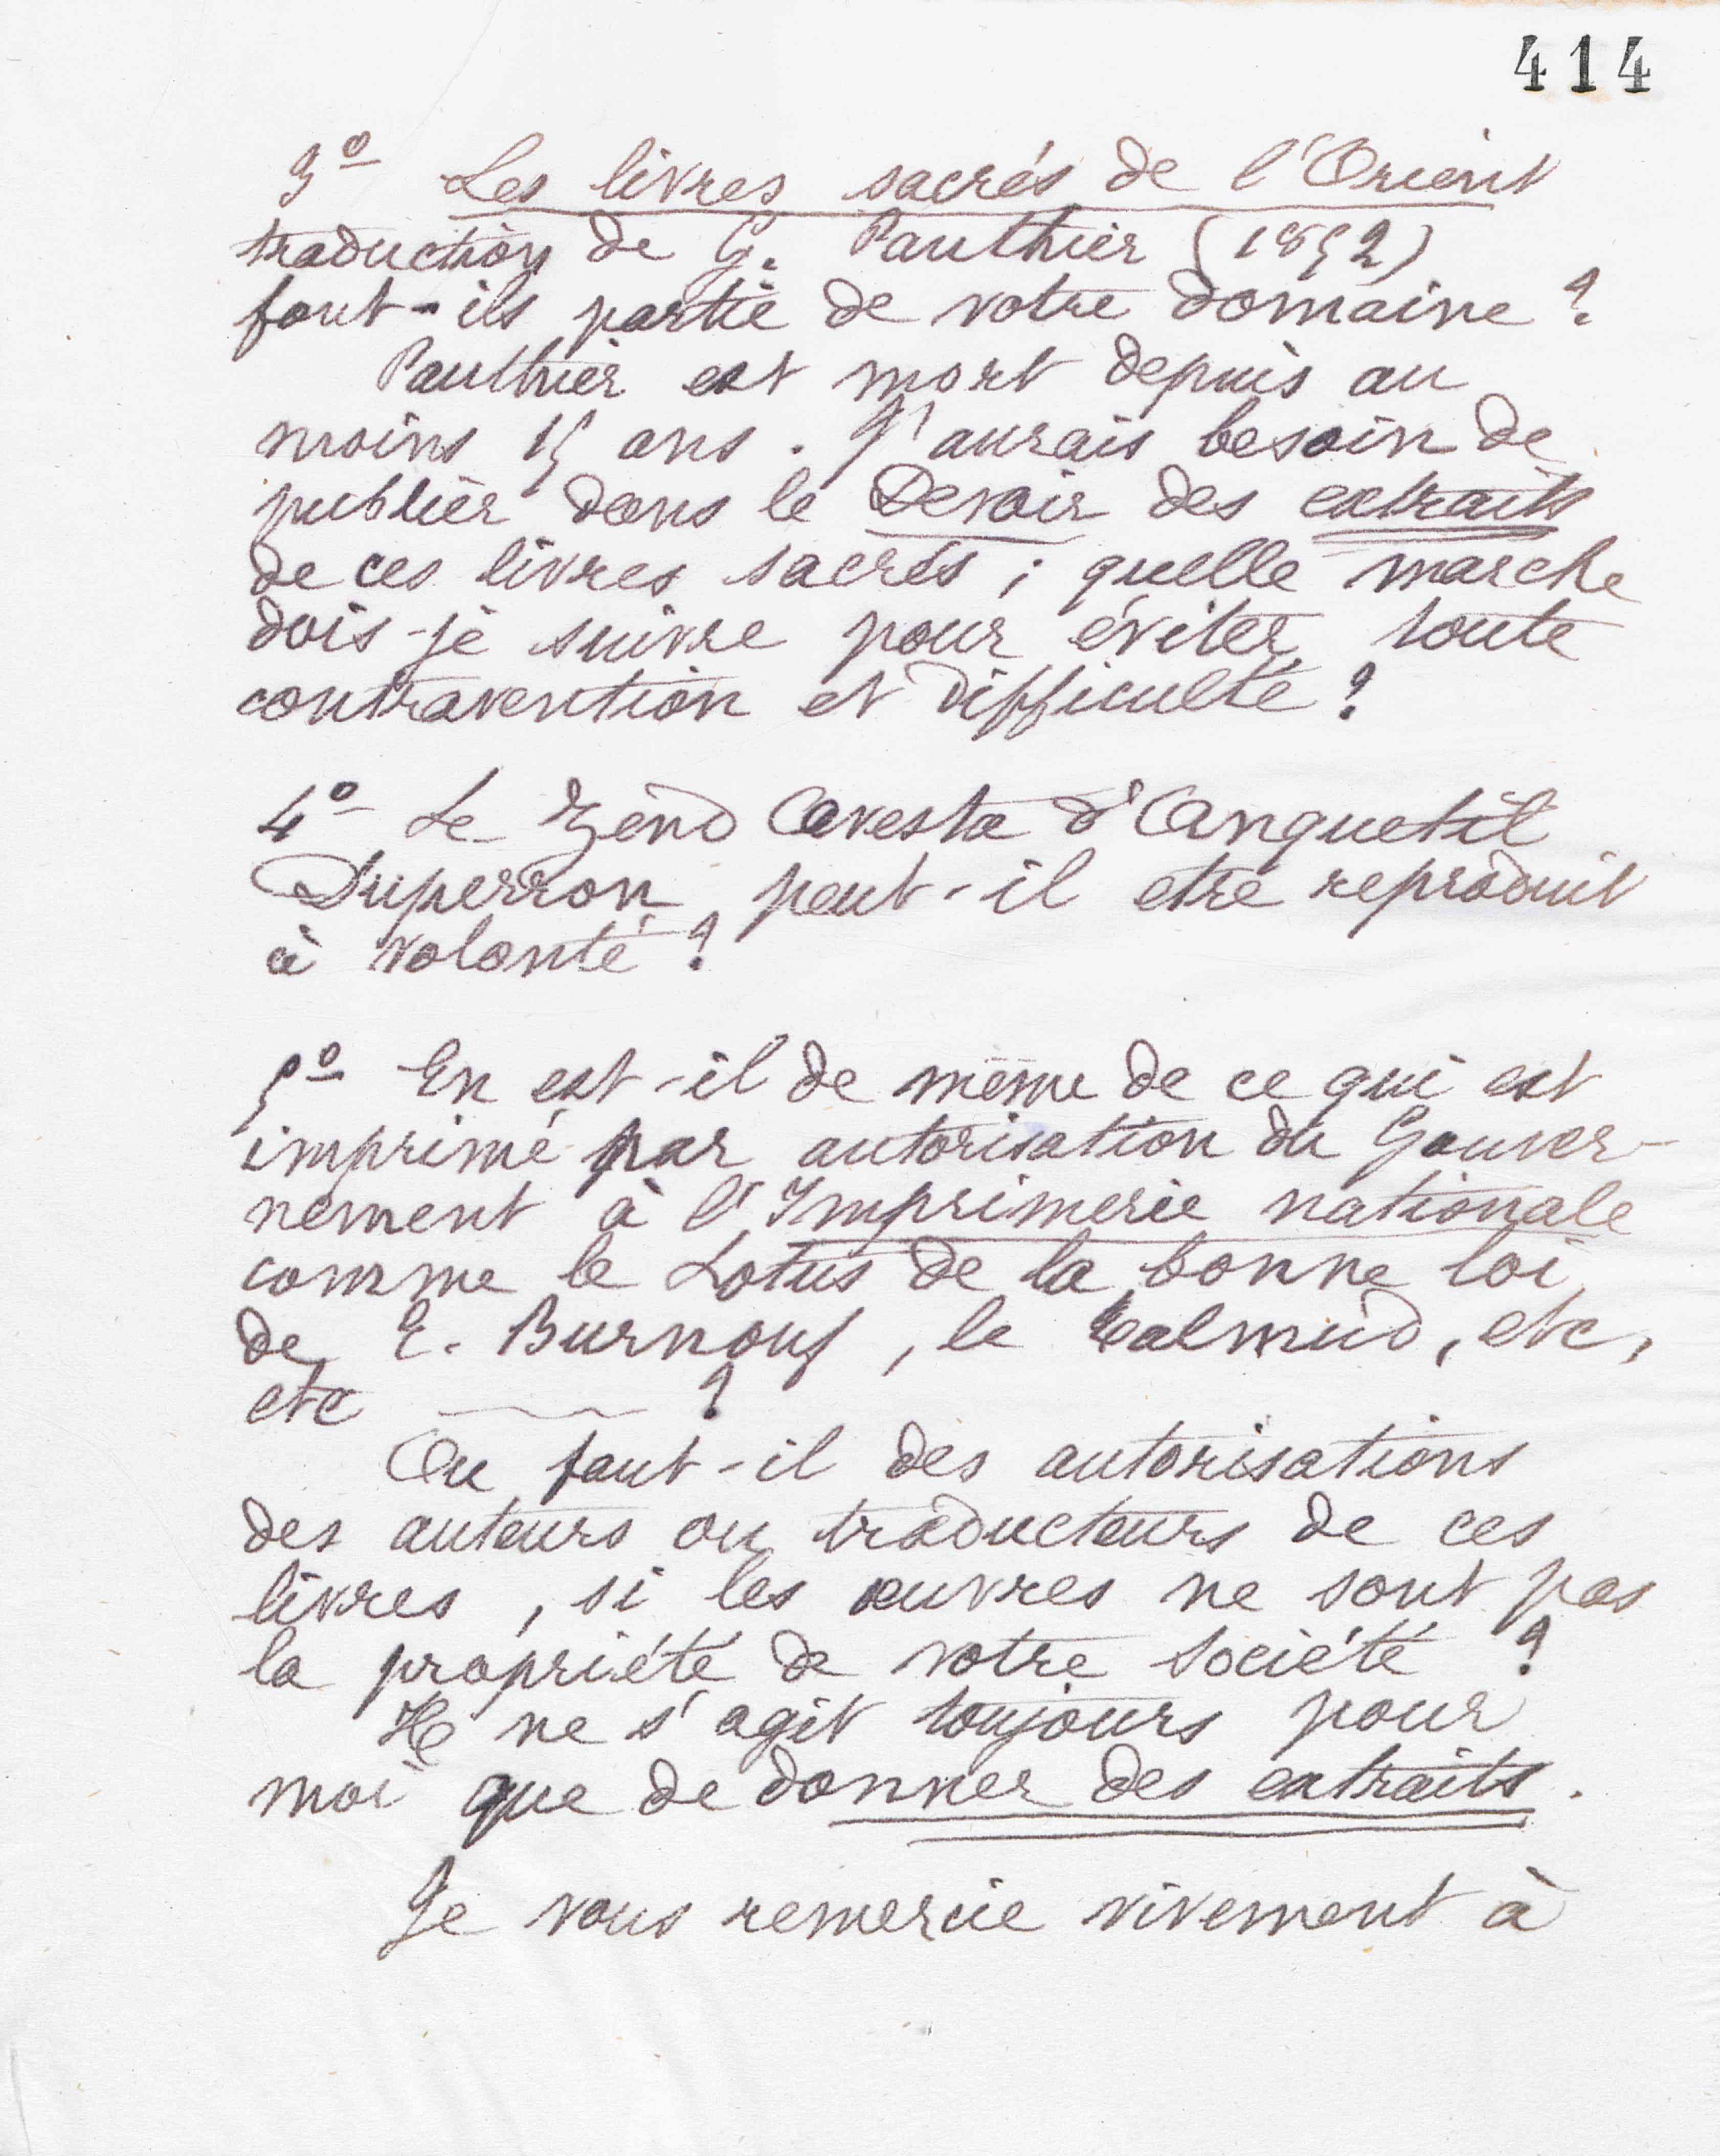 414
3º Les livres sacrés de l'Orient
traduction de G. Pauthier (1852)
font-ils partie de votre domaine ?
Pauthier est mort depuis au
moins 15 ans. J'aurais besoin de
publier dans le Devoir des extraits
de ces livres sacrés ; quelle marche
dois-je suivre pour éviter toute
contravention et difficulté ?
4º Le Zend Avesta d'Anquetil
Duperron peut-il etre reproduit
à volonté ?
5º En est-il de même de ce qui est
imprimé par autorisation du Gouver-
nement à l'Imprimerie nationale
comme le Lotus de la bonne loi
de E. Burnouf, le Talmud, etc,
etc ?
Ou faut-il des autorisations
des auteurs ou traducteurs de ces
livres, si les œuvres ne sont pas
la propriété de votre société ?
Il ne s'agit toujours pour
moi que de donner des extraits.
Je vous remercie vivement à